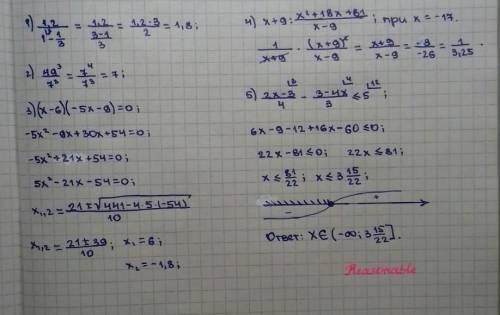 1) 1,2 / (1 - 1/3) = 1,2 / ((3-1)/3) = (1,2·3)/2 = 1,8;
2) 49³/7² = 7⁴/7³ = 7;
3) (x-6)(-5x-9)=0;
-5x²-9x+30x+54=0;
-5x²+21x+54=0;
5x²-21x-54=0;
x₁,₂ = (21±√(441-4·5·(-54)))/10
x₁,₂ = (21±39)/10; x₁=6;
x₂=-1,8;
4) x+9 : (x²+18x+81)/(x-9); при x=-17.
1/(x+9) · (x+9)²/(x-9) = (x+9)/(x-9) = -8/-26 = 1/3,25.
5) (2x-3)/4 - (3-4x)/3 ≤ 5;
6x-9-12+16x-60≤0;
22x-81≤0; 22x≤81;
x≤81/22; x≤3 15/22;
- +
Ответ: X∈(-∞; 3 15/22].
Reasonable